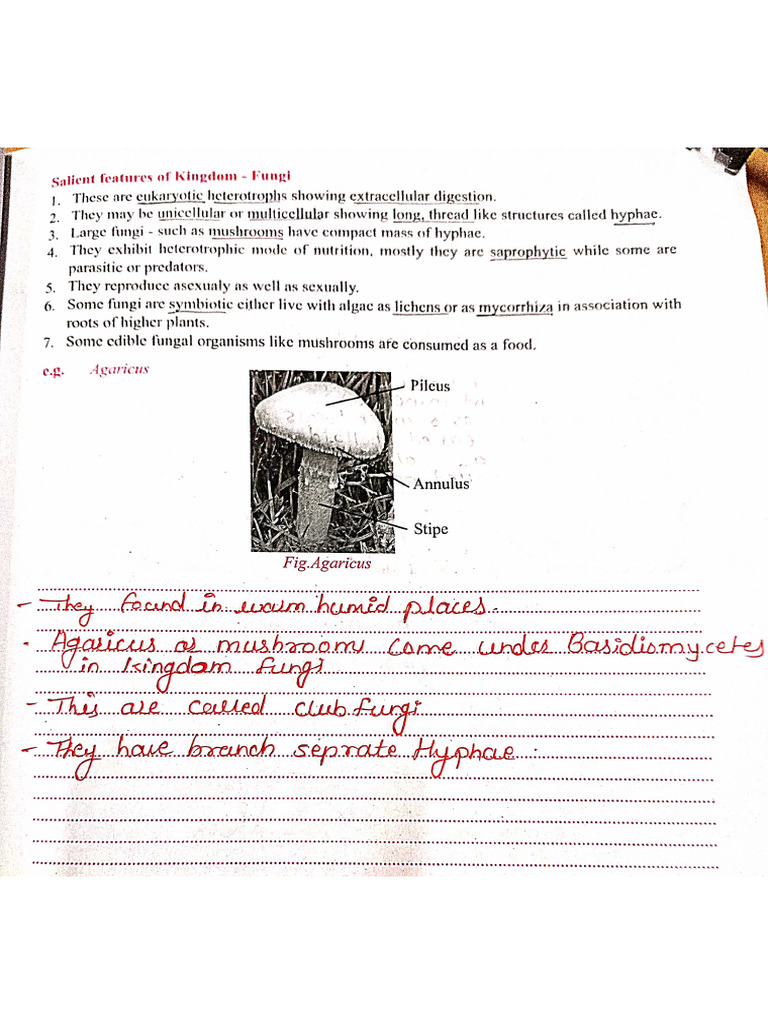 Salient features of Kingdom - Fungi
1. These are eukaryotic heterotrophs showing extracellular digestion.
2. They may be unicellular or multicellular showing long, thread like structures called hyphae.
3. Large fungi - such as mushrooms have compact mass of hyphae.
4. They exhibit heterotrophic mode of nutrition, mostly they are saprophytic while some are
parasitic or predators.
5. They reproduce asexualy as well as sexually.
6. Some fungi are symbiotic either live with algae as lichens or as mycorrhiza in association with
roots of higher plants.
7. Some edible fungal organisms like mushrooms are consumed as a food.
e.g. Agaricus
Pileus
Annulus
Stipe
Fig.Agaricus
- They found in warm humid places.
- Agaricus or mushrooms come under Basidiomycetes
in kingdom fungi
- This are called club fungi
- They have branch seprate Hyphae.